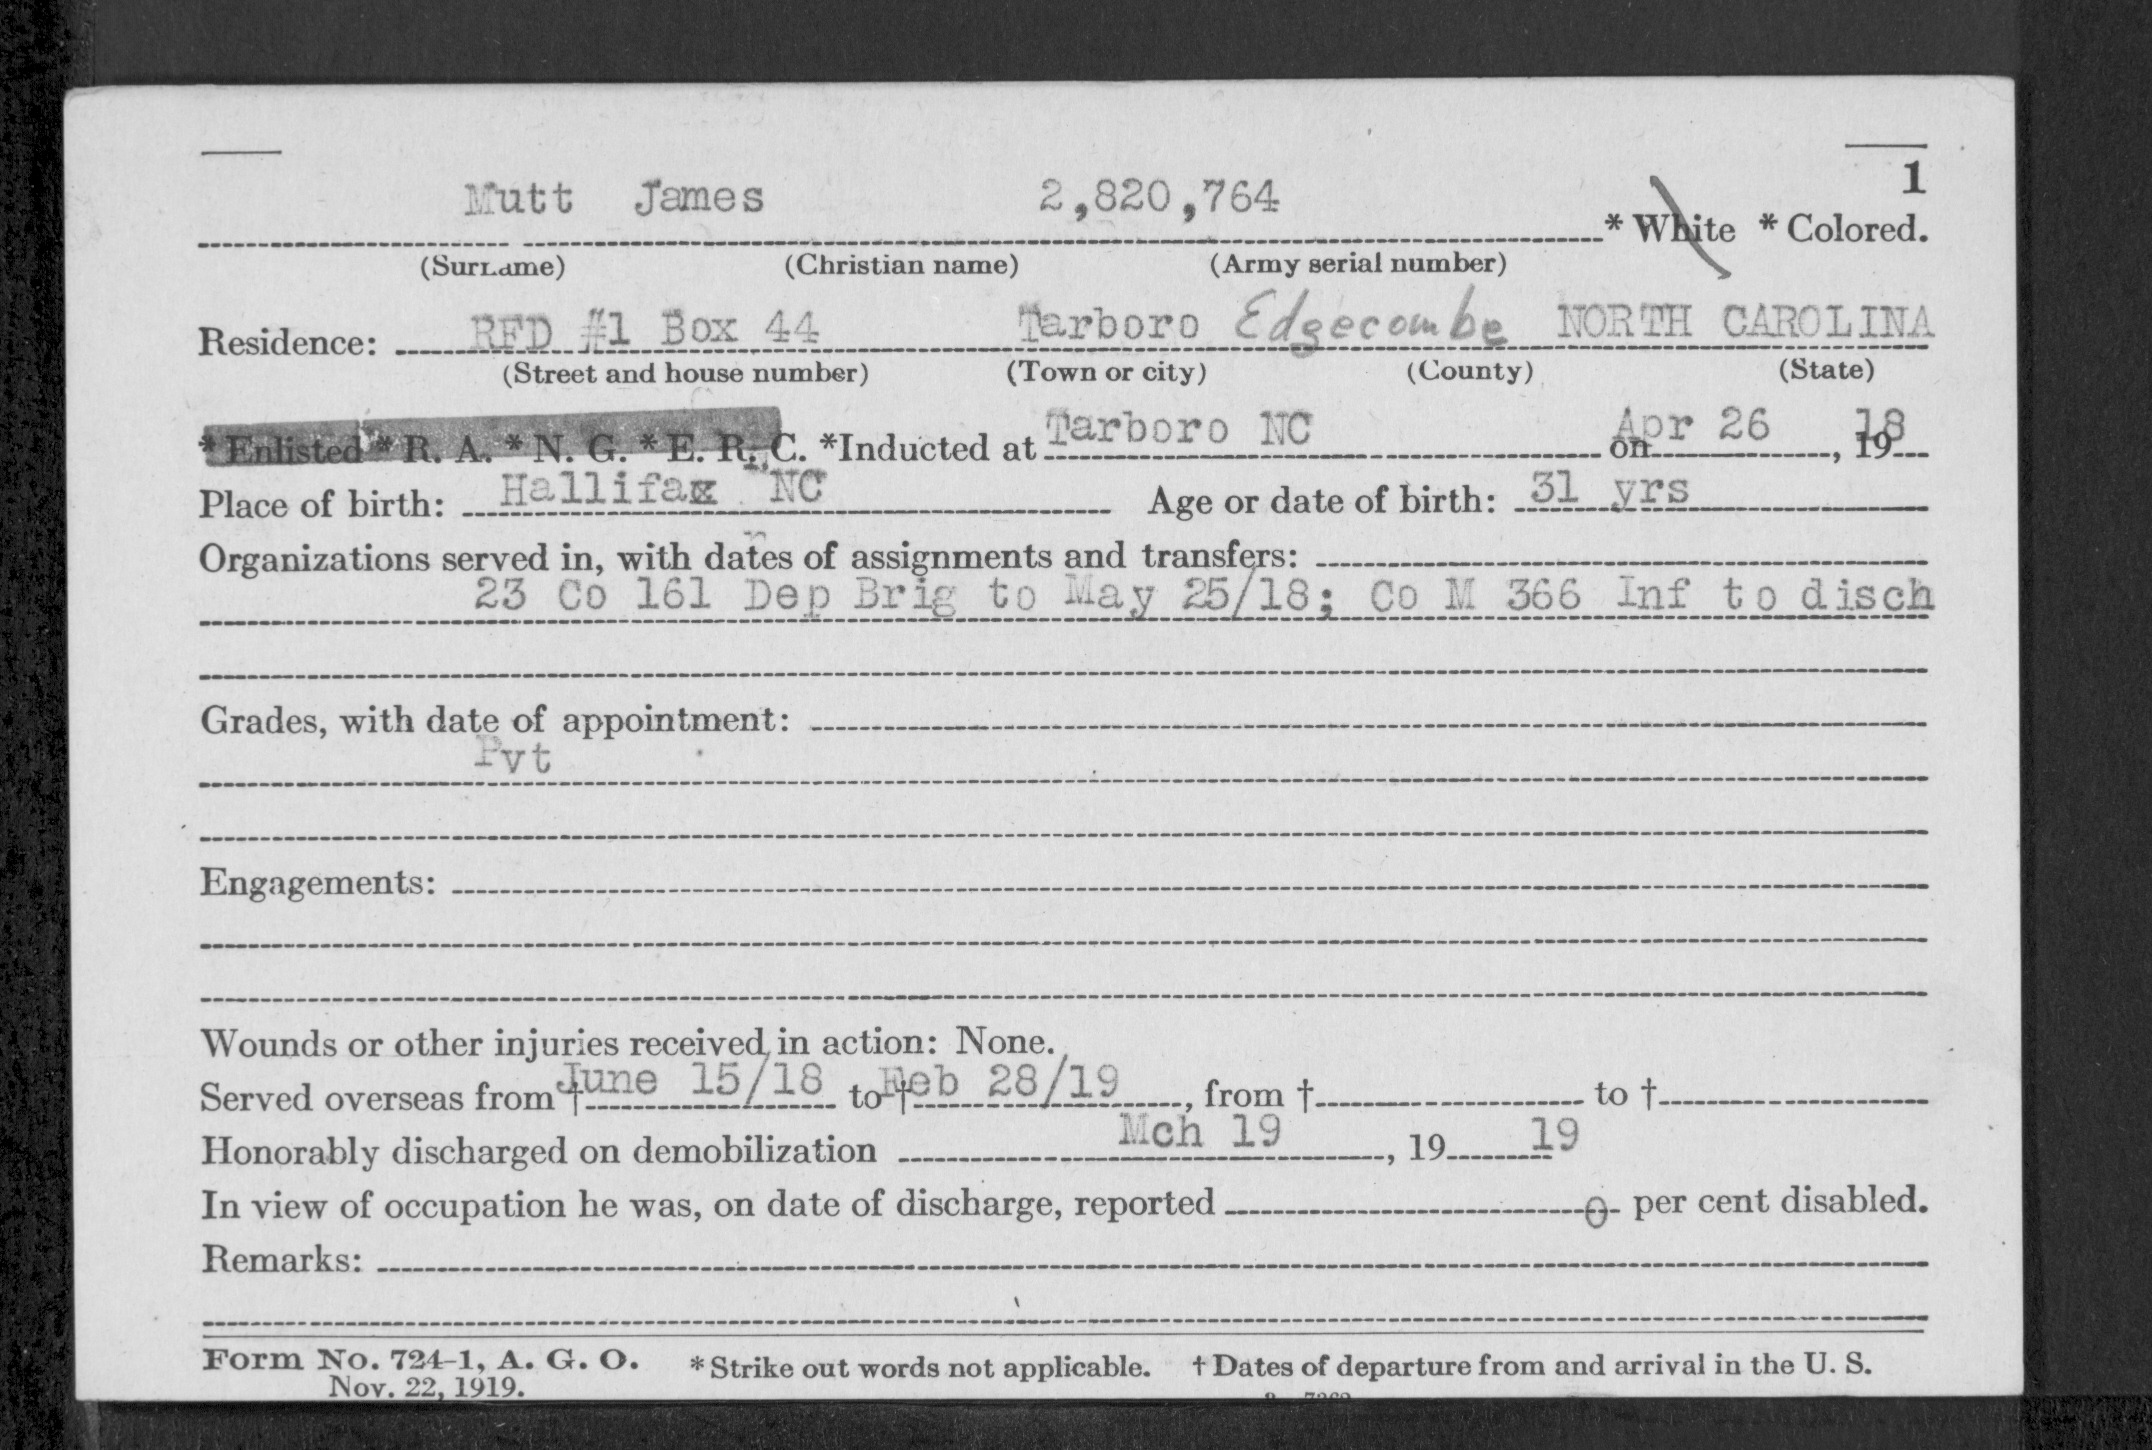 1
Mutt James 2,820,764 * White * Colored.
(Surname) (Christian name) (Army serial number)
Residence: RFD #1 Box 44 Tarboro Edgecombe NORTH CAROLINA
(Street and house number) (Town or city) (County) (State)
* Enlisted * R. A. * N. G. * E. R. C. *Inducted at Tarboro NC on Apr 26, 1918
Place of birth: Hallifax NC Age or date of birth: 31 yrs
Organizations served in, with dates of assignments and transfers:
23 Co 161 Dep Brig to May 25/18; Co M 366 Inf to disch
Grades, with date of appointment:
Pvt
Engagements:
Wounds or other injuries received in action: None.
Served overseas from † June 15/18 to † Feb 28/19, from † to †
Honorably discharged on demobilization Mch 19, 19 19
In view of occupation he was, on date of discharge, reported 0 per cent disabled.
Remarks:
Form No. 724-1, A. G. O. * Strike out words not applicable. † Dates of departure from and arrival in the U. S.
Nov. 22, 1919.